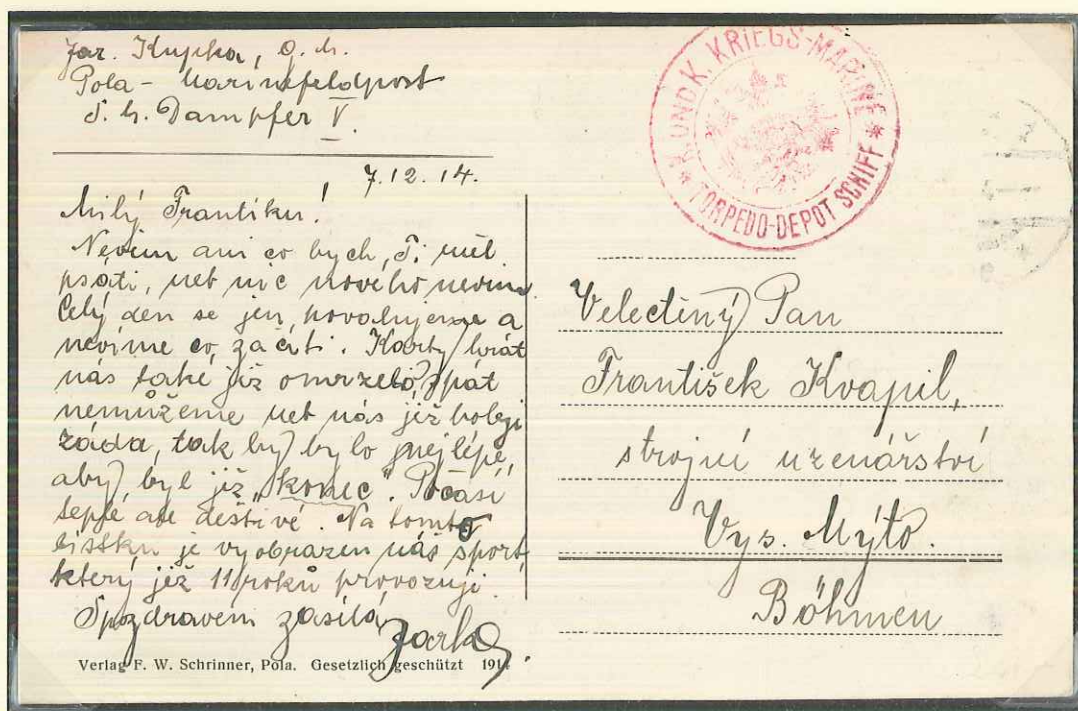 Jar. Kupka, Q. M.
Pola - Marinefeldpost
S. M. Dampfer V.
7.12.14.
Milý Frantíku!
Nevím ani co bych Ti měl
psáti, neb nic nového nevím
Celý den se jen povalujeme a
nevíme co začíti. Karty hrát
nás také již omrzelo, spát
nemůžeme neb nás již bolejí
záda, tak by bylo nejlépe,
aby byl již „konec“. Počasí
teplé ale deštivé. Na tomto
lístku je vyobrazen náš sport,
který již 11 roků provozuji.
S pozdravem zasílá
Jarka
Verlag F. W. Schrinner, Pola. Gesetzlich geschützt
K. UND K. KRIEGS-MARINE
* TORPEDO-DEPOT SCHIFF *
Velectěný Pan
František Kvapil,
strojní uzenářství
Vys. Mýto.
Böhmen